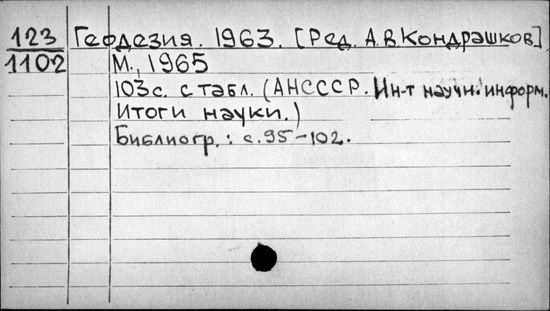 123 Геодезия. 1963. [Ред. А.В.Кондрашков]
1102 М., 1965
103с. с табл. (АН СССР. Ин-т научн. информ.
Итоги науки.)
Библиогр.: с.95-102.